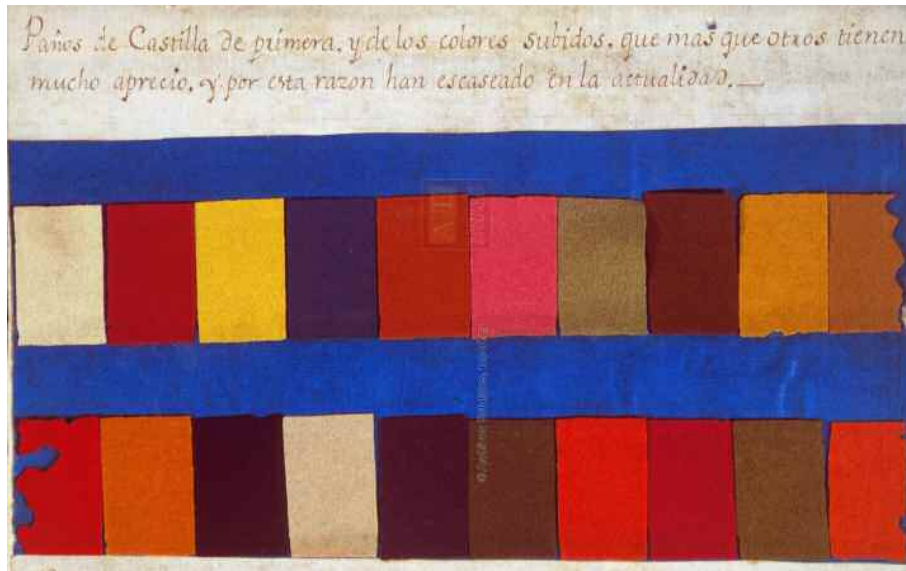 Paños de Castilla de primera, y de los colores subidos, que mas que otros tienen
mucho aprecio, y por esta razon han escaseado en la actualidad.—